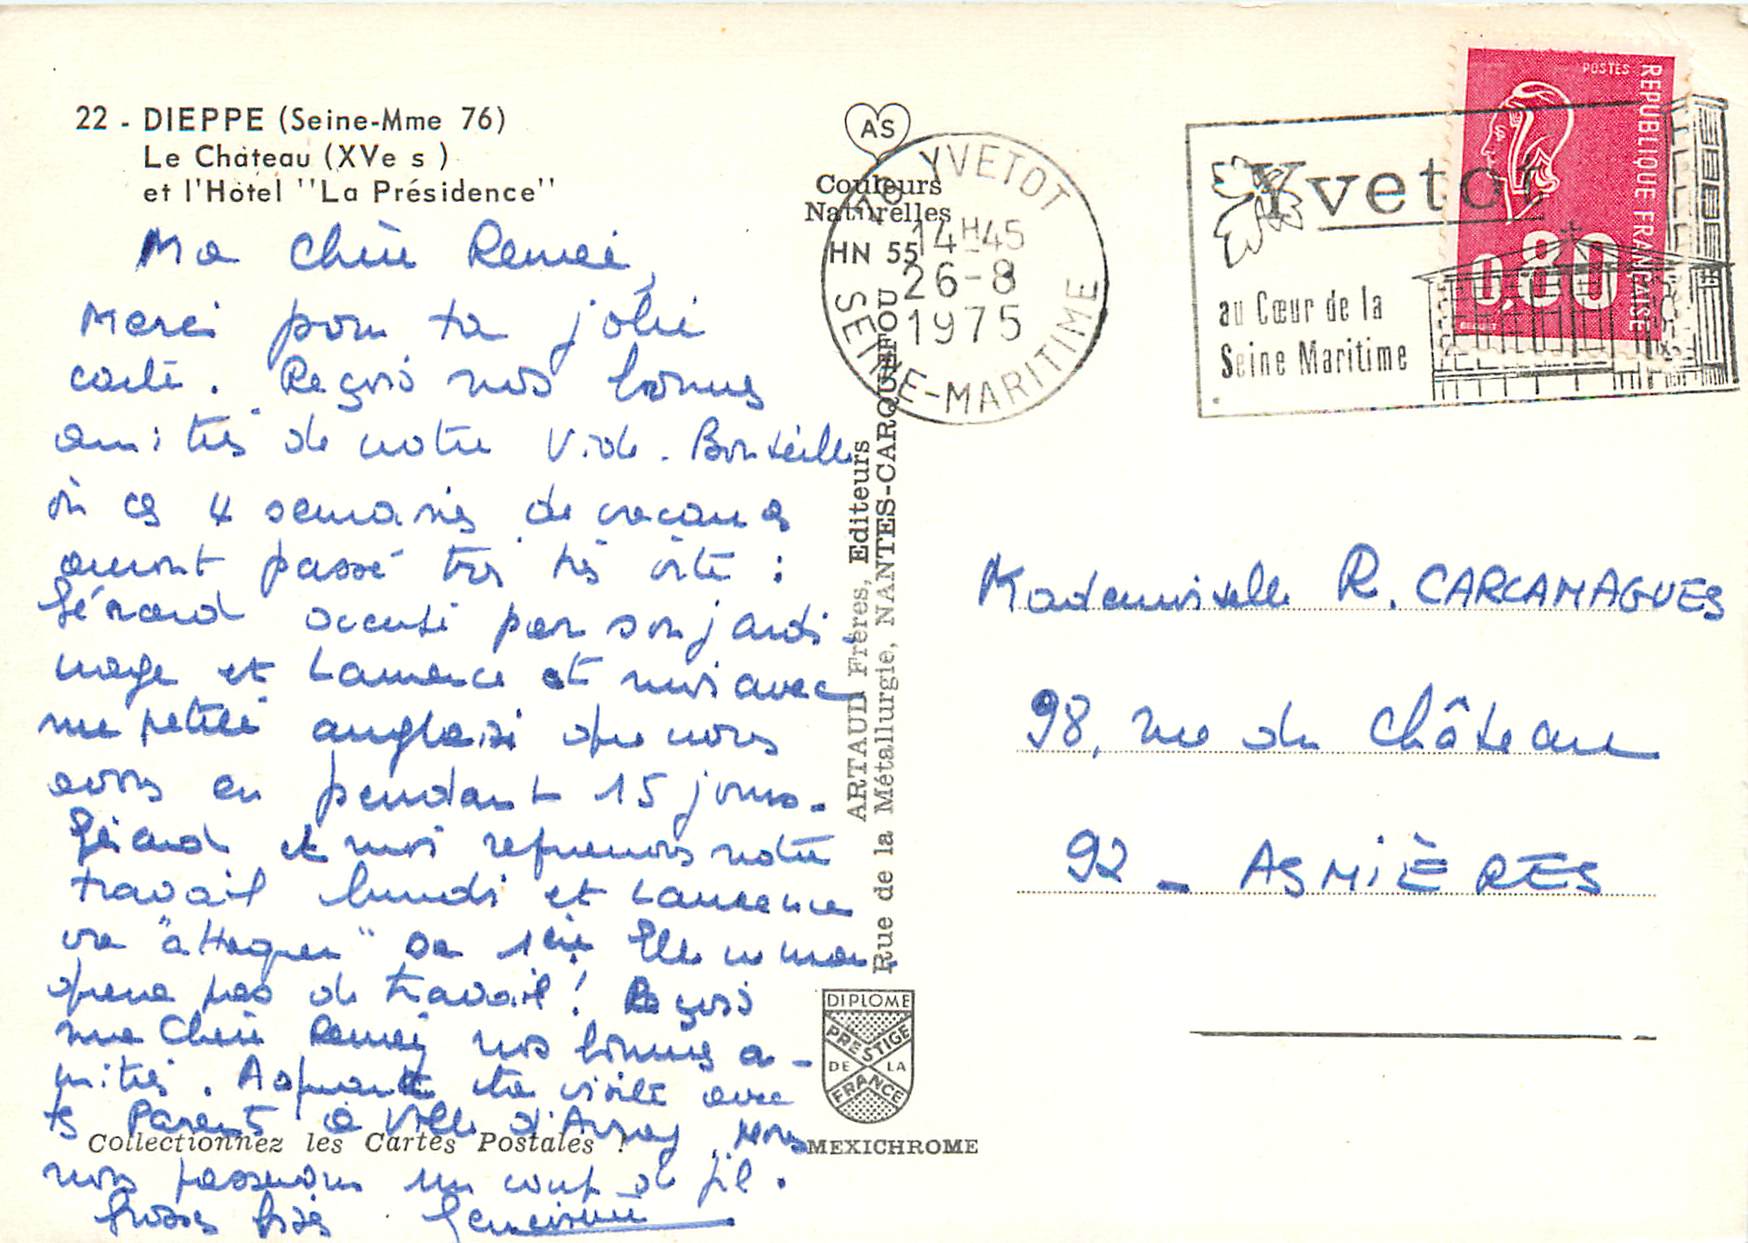 22 - DIEPPE (Seine-Mme 76)
Le Château (XVe s )
et l'Hôtel "La Présidence"
Ma Chère Remei,
Merci pour ta jolie
carte. Reçois nos bonnes
amitiés de notre Vide-Bouteille
où ces 4 semaines de vacances
auront passé très très vite :
Gérard occupé par son jardi
nage et Laurence et moi avec
une petite anglaise que nous
avons eu pendant 15 jours.
Gérard et moi reprenons notre
travail lundi et Laurence
va "attaquer" sa 1ère Elle ne man
quera pas de travail ! Reçois
ma Chère Remei nos bonnes a-
mitiés. A quand ta visite avec
ts Parents à Ville d'Avray. Nous
nous passerons un coup de fil.
Grosses bises Geneviève
Collectionnez les Cartes Postales !
AS
Couleurs
Naturelles
HN 55
ARTAUD Frères, Editeurs
Rue de la Métallurgie, NANTES-CARQUEFOU
DIPLOME
PRESTIGE
DE LA
FRANCE
MEXICHROME
76 YVETOT
14H45
26-8
1975
SEINE-MARITIME
Yvetot
au Cœur de la
Seine Maritime
POSTES
REPUBLIQUE FRANÇAISE
0,80
BEQUET
Mademoiselle R. CARCAMAGUES
98, rue du Château
92 - ASNIÈRES